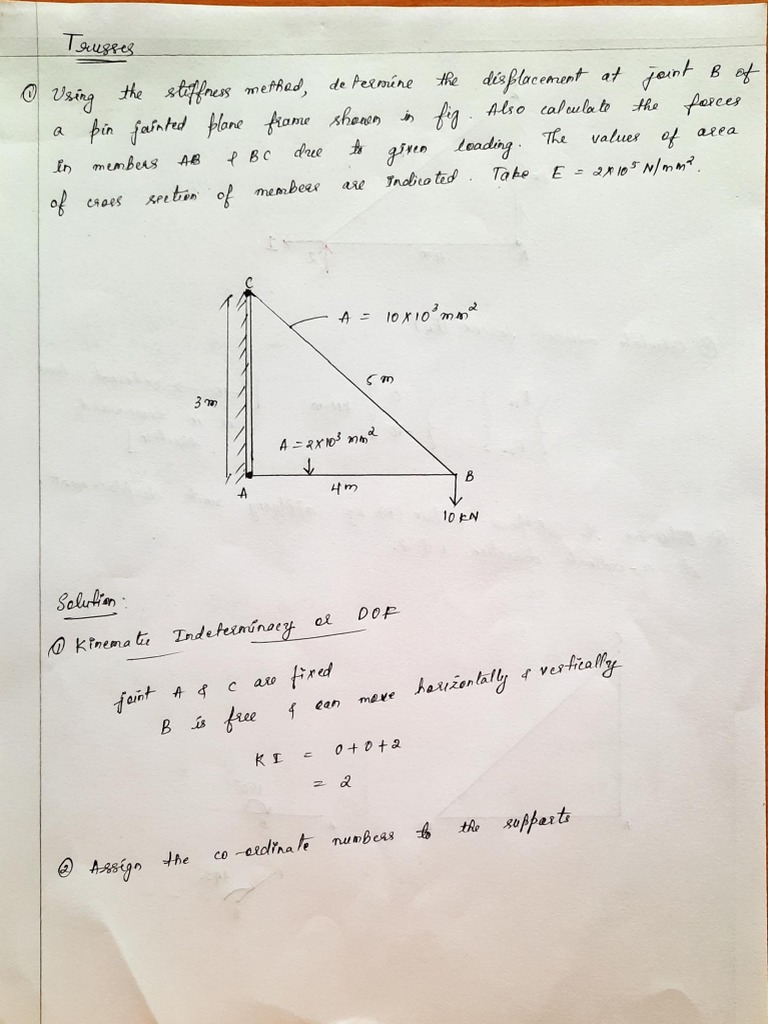 Trusses
① Using the stiffness method, determine the displacement at joint B of
a pin jointed plane frame shown in fig. Also calculate the forces
in members AB & BC due to given loading. The values of area
of cross section of members are indicated. Take E = 2×10⁵ N/mm².
C
A = 10×10³ mm²
5 m
3 m
A = 2×10³ mm²
A
4m
B
10 KN
Solution:
① Kinematic Indeterminacy or DOF
joint A & C are fixed
B is free & can move horizontally & vertically
KI = 0+0+2
= 2
② Assign the co-ordinate numbers to the supports